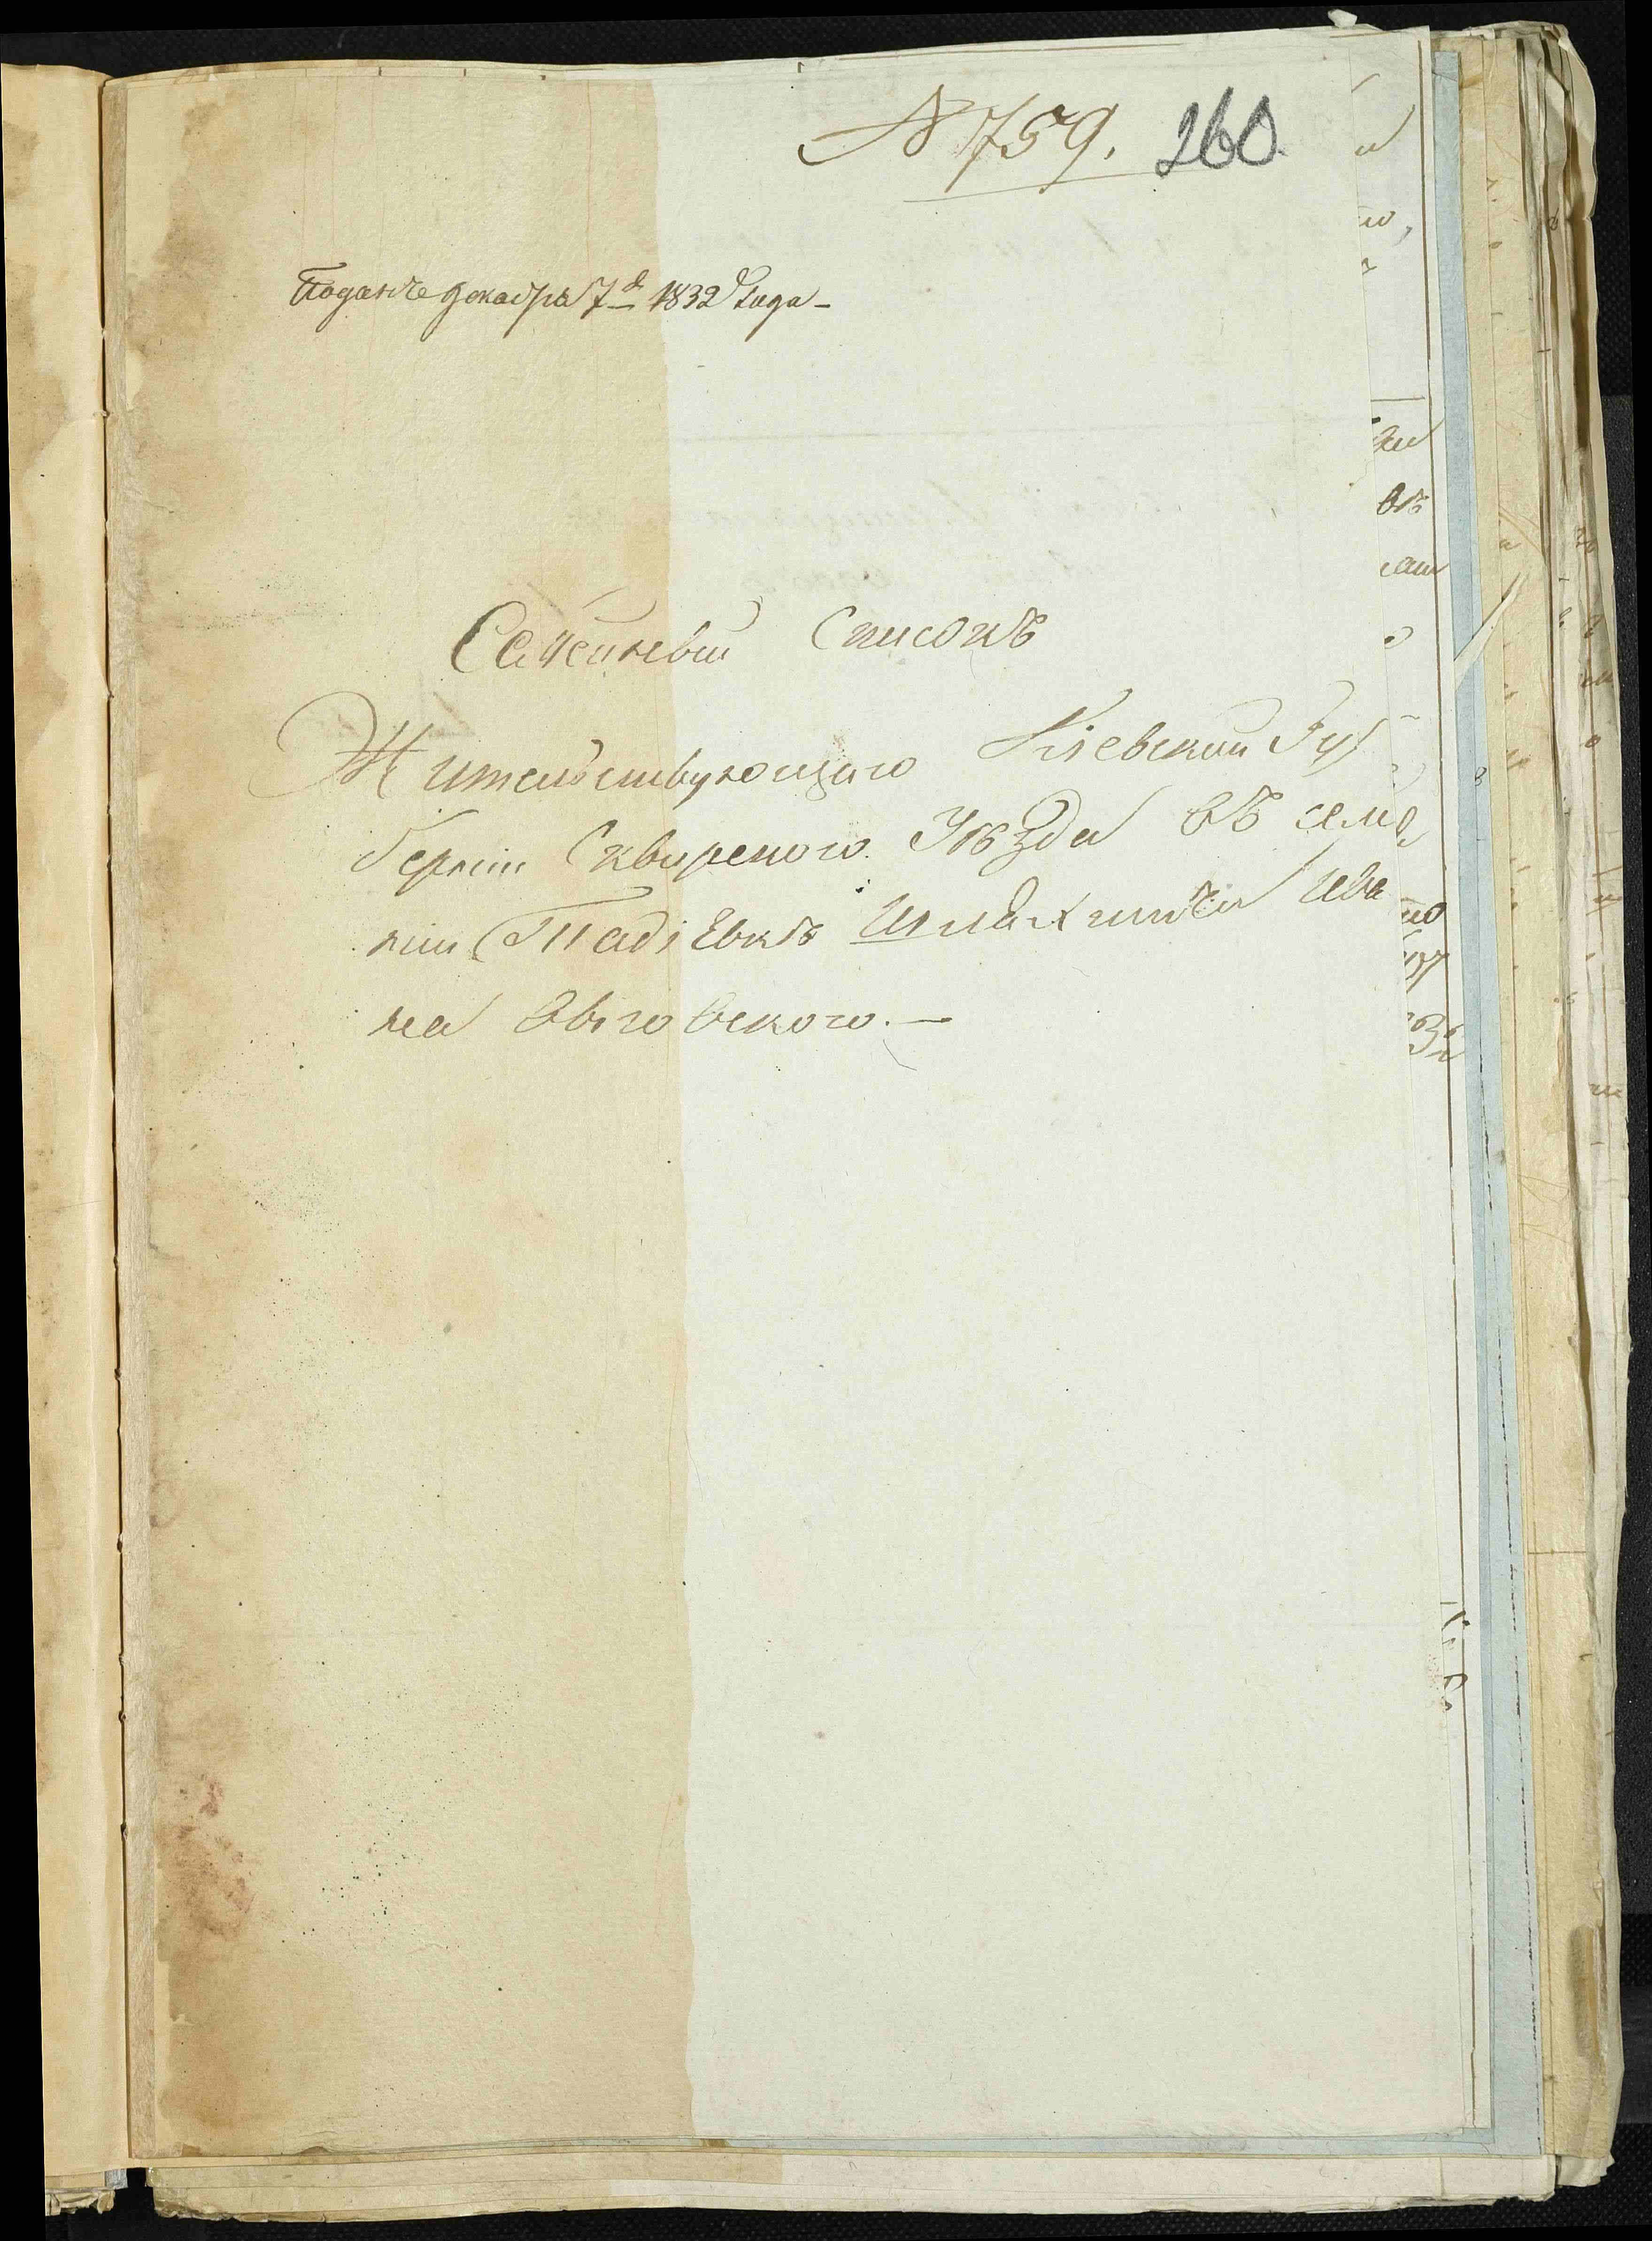 № 759. 260
Поданъ декабря 7д 1832 года -
Семейный Списокъ
Жительствующаго Кіевский Гу
берніи Сквирского Уѣзда въ селѣ
Тадіевкѣ Шляхтича Ива
на Выговского. —